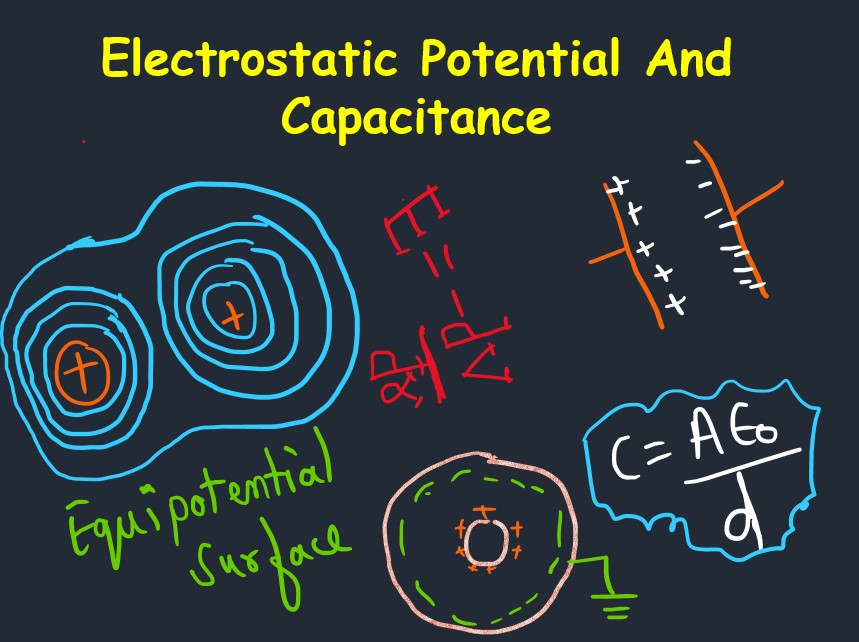 Electrostatic Potential And
Capacitance
E = - dV/dr
C = Aε₀/d
Equipotential
Surface